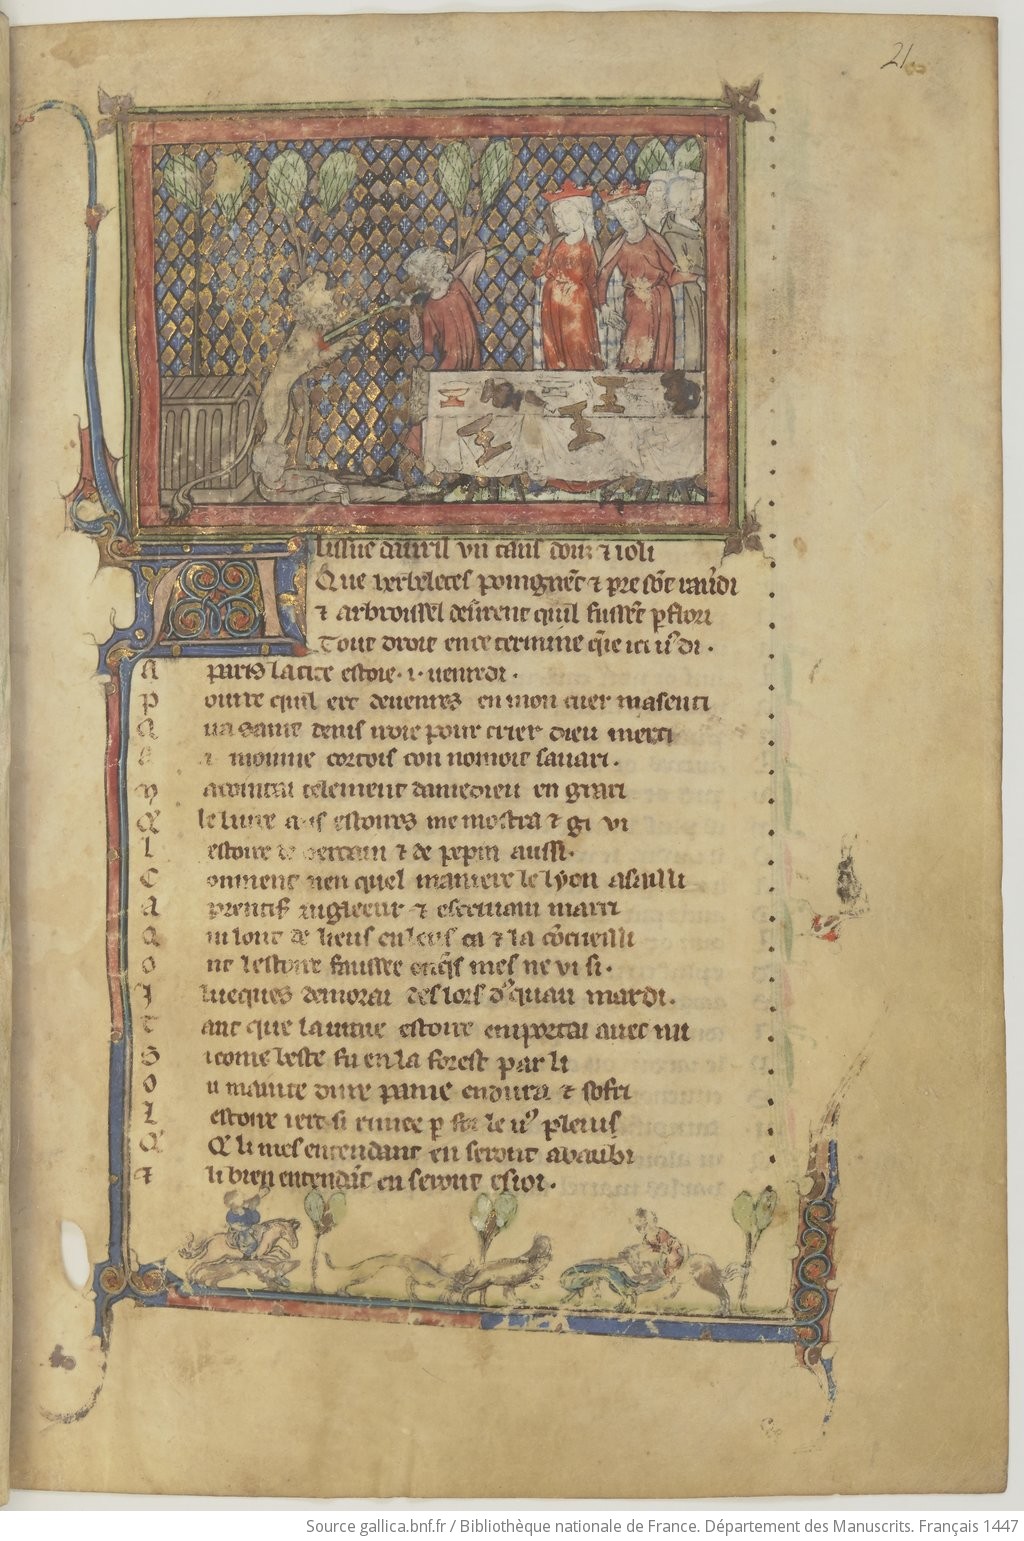 21
A lissue dauril vn tans douz ⁊ ioli
Que herbeletes poingnēt ⁊ pre sōt rauꝰdi
⁊ arbroissel desirent quil fussēt ꝑflori
Tout droit en ce termine q̄ ie ici uꝰ di .
A paris la cite estoie . i . uenredi .
p our ce quil ert deuenres en mon cuer masenti
Q ua saint denis iroie pour crier dieu merci
moinne cortois con nomoit sauari .
M acointai telement damedieu en graci
Q le liure as estoires me mostra ⁊ gi vi
L estoire de bertain ⁊ de pepin aussi .
C onment n en quel maniere le lyon asailli
A prentif iugleeur ⁊ escriuain marri
Q ui lont de lieus en leus ca ⁊ la cōcueilli
O nt lestoire faussee onq̄s mes ne vi si .
I lueques demorai des lors dꝰquau mardi .
T ant que la uraie estoire enportai auec mi
S i come berte fu en la forest par li
O u mainte dure painne endura ⁊ sofri
L estoire iert si rimee ꝑ foi le uꝰ pleuis
Q li mesentendant en seront abaubi
⁊ li bien entendāt en seront esioi .
Source gallica.bnf.fr / Bibliothèque nationale de France. Département des Manuscrits. Français 1447